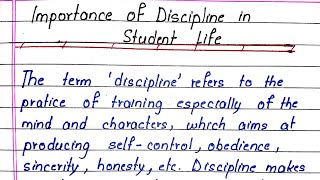 Importance of Discipline in
Student Life
The term 'discipline' refers to the
pratice of training especcally of the
mind and characters, which aims at
producing self-control, obedience,
sincerity, honesty, etc. Discipline makes